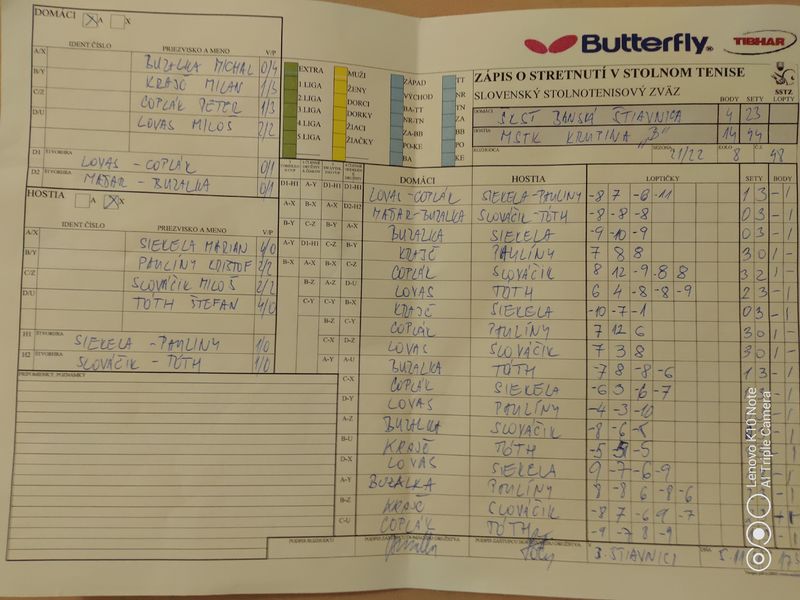 DOMÁCI X A X
IDENT. ČÍSLO PRIEZVISKO A MENO V/P
A/X BUZALKA MICHAL 0/4
B/Y KRAJČ MILAN 1/3
C/Z COPLÁK PETER 1/3
D/U LOVAS MILOŠ 2/2
D1 ŠTVORHRA LOVAS - COPLÁK 0/1
D2 ŠTVORHRA MAŤAR - BUZALKA 0/1
HOSTIA A X X
IDENT ČÍSLO PRIEZVISKO A MENO V/P
A/X SIEKELA MARIAN 4/0
B/Y PAULÍNY KRIŠTOF 2/2
C/Z SLOVÁČIK MILOŠ 2/2
D/U TÓTH ŠTEFAN 4/0
H1 ŠTVORHRA SIEKELA - PAULÍNY 1/0
H2 ŠTVORHRA SLOVÁČIK - TÓTH 1/0
PRIPOMIENKY POZNÁMKY
EXTRA
1.LIGA
2.LIGA
3.LIGA
4.LIGA
5.LIGA
MUŽI
ŽENY
DORCI
DORKY
ŽIACI
ŽIAČKY
ZÁPAD
VÝCHOD
BA-TT
NR-TN
ZA-BB
PO-KE
BA
TT
NR
TN
ZA
BB
PO
KE
Butterfly
TIBHAR
ZÁPIS O STRETNUTÍ V STOLNOM TENISE
SLOVENSKÝ STOLNOTENISOVÝ ZVÄZ
SSTZ
BODY SETY LOPTY
DOMÁCI ŠKST BANSKÁ ŠTIAVNICA 4 23
HOSTIA MSTK KRUPINA "B" 14 44
ROZHODCA SEZÓNA 21/22 KOLO 8 Č.Z. 48
DOMÁCI HOSTIA LOPTIČKY SETY BODY
D1-H1 LOVAS-COPLÁK SIEKELA-PAULINY -8 7 -6 -11 1 3 - 1
D2-H2 MAŤAR-BUZALKA SLOVÁČIK-TÓTH -8 -8 -8 0 3 - 1
A-X BUZALKA SIEKELA -9 -10 -9 0 3 - 1
B-Y KRAJČ PAULÍNY 7 8 8 3 0 1 -
C-Z COPLÁK SLOVÁČIK 8 12 -9 -8 8 3 2 1 -
D-U LOVAS TÓTH 6 4 -8 -8 -9 2 3 - 1
KRAJČ SIEKELA -10 -7 -1 0 3 - 1
COPLÁK PAULÍNY 7 12 6 3 0 1 -
LOVAS SLOVÁČIK 7 3 8 3 0 1 -
A-U BUZALKA TÓTH -7 8 -8 -6 1 3 - 1
C-X COPLÁK SIEKELA -6 3 -6 -7
D-Y LOVAS PAULÍNY -4 -3 -10
A-Z BUZALKA SLOVÁČIK -8 -6 -8
B-U KRAJČ TÓTH -5 -5
D-X LOVAS SIEKELA 9 -7 -6 -9
A-Y BUZALKA PAULÍNY 8 -8 6 -8 -6
B-Z KRAJČ SLOVÁČIK -8 7 -6 9 -7
C-U COPLÁK TÓTH -9 -7 8 -9
PODPIS ROZHODCU
B. ŠTIAVNICI
DŇA 5.11
Lenovo K10 Note
AI Triple Camera